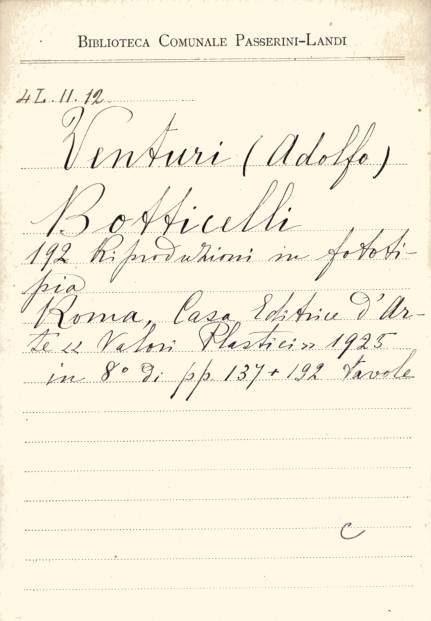 BIBLIOTECA COMUNALE PASSERINI-LANDI
4L.II.12
Venturi (Adolfo)
Botticelli
192 Riproduzioni in fototi-
pia
Roma, Casa Editrice d'Ar-
te « Valori Plastici » 1925
in 8° di pp. 137 + 192 tavole
C